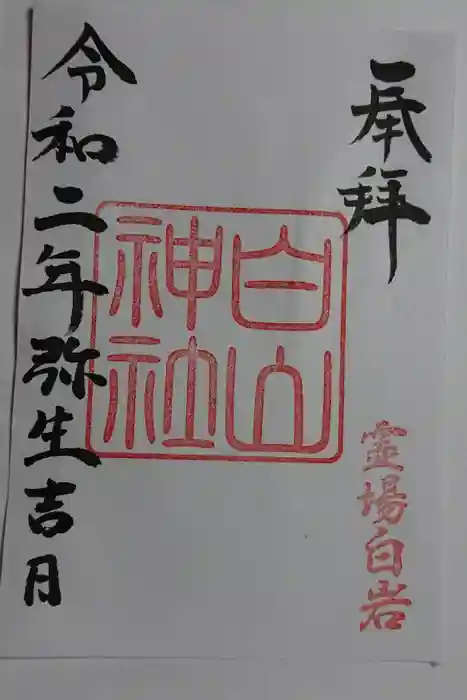 奉拝
靈場白岩
白山
神社
令和二年弥生吉月